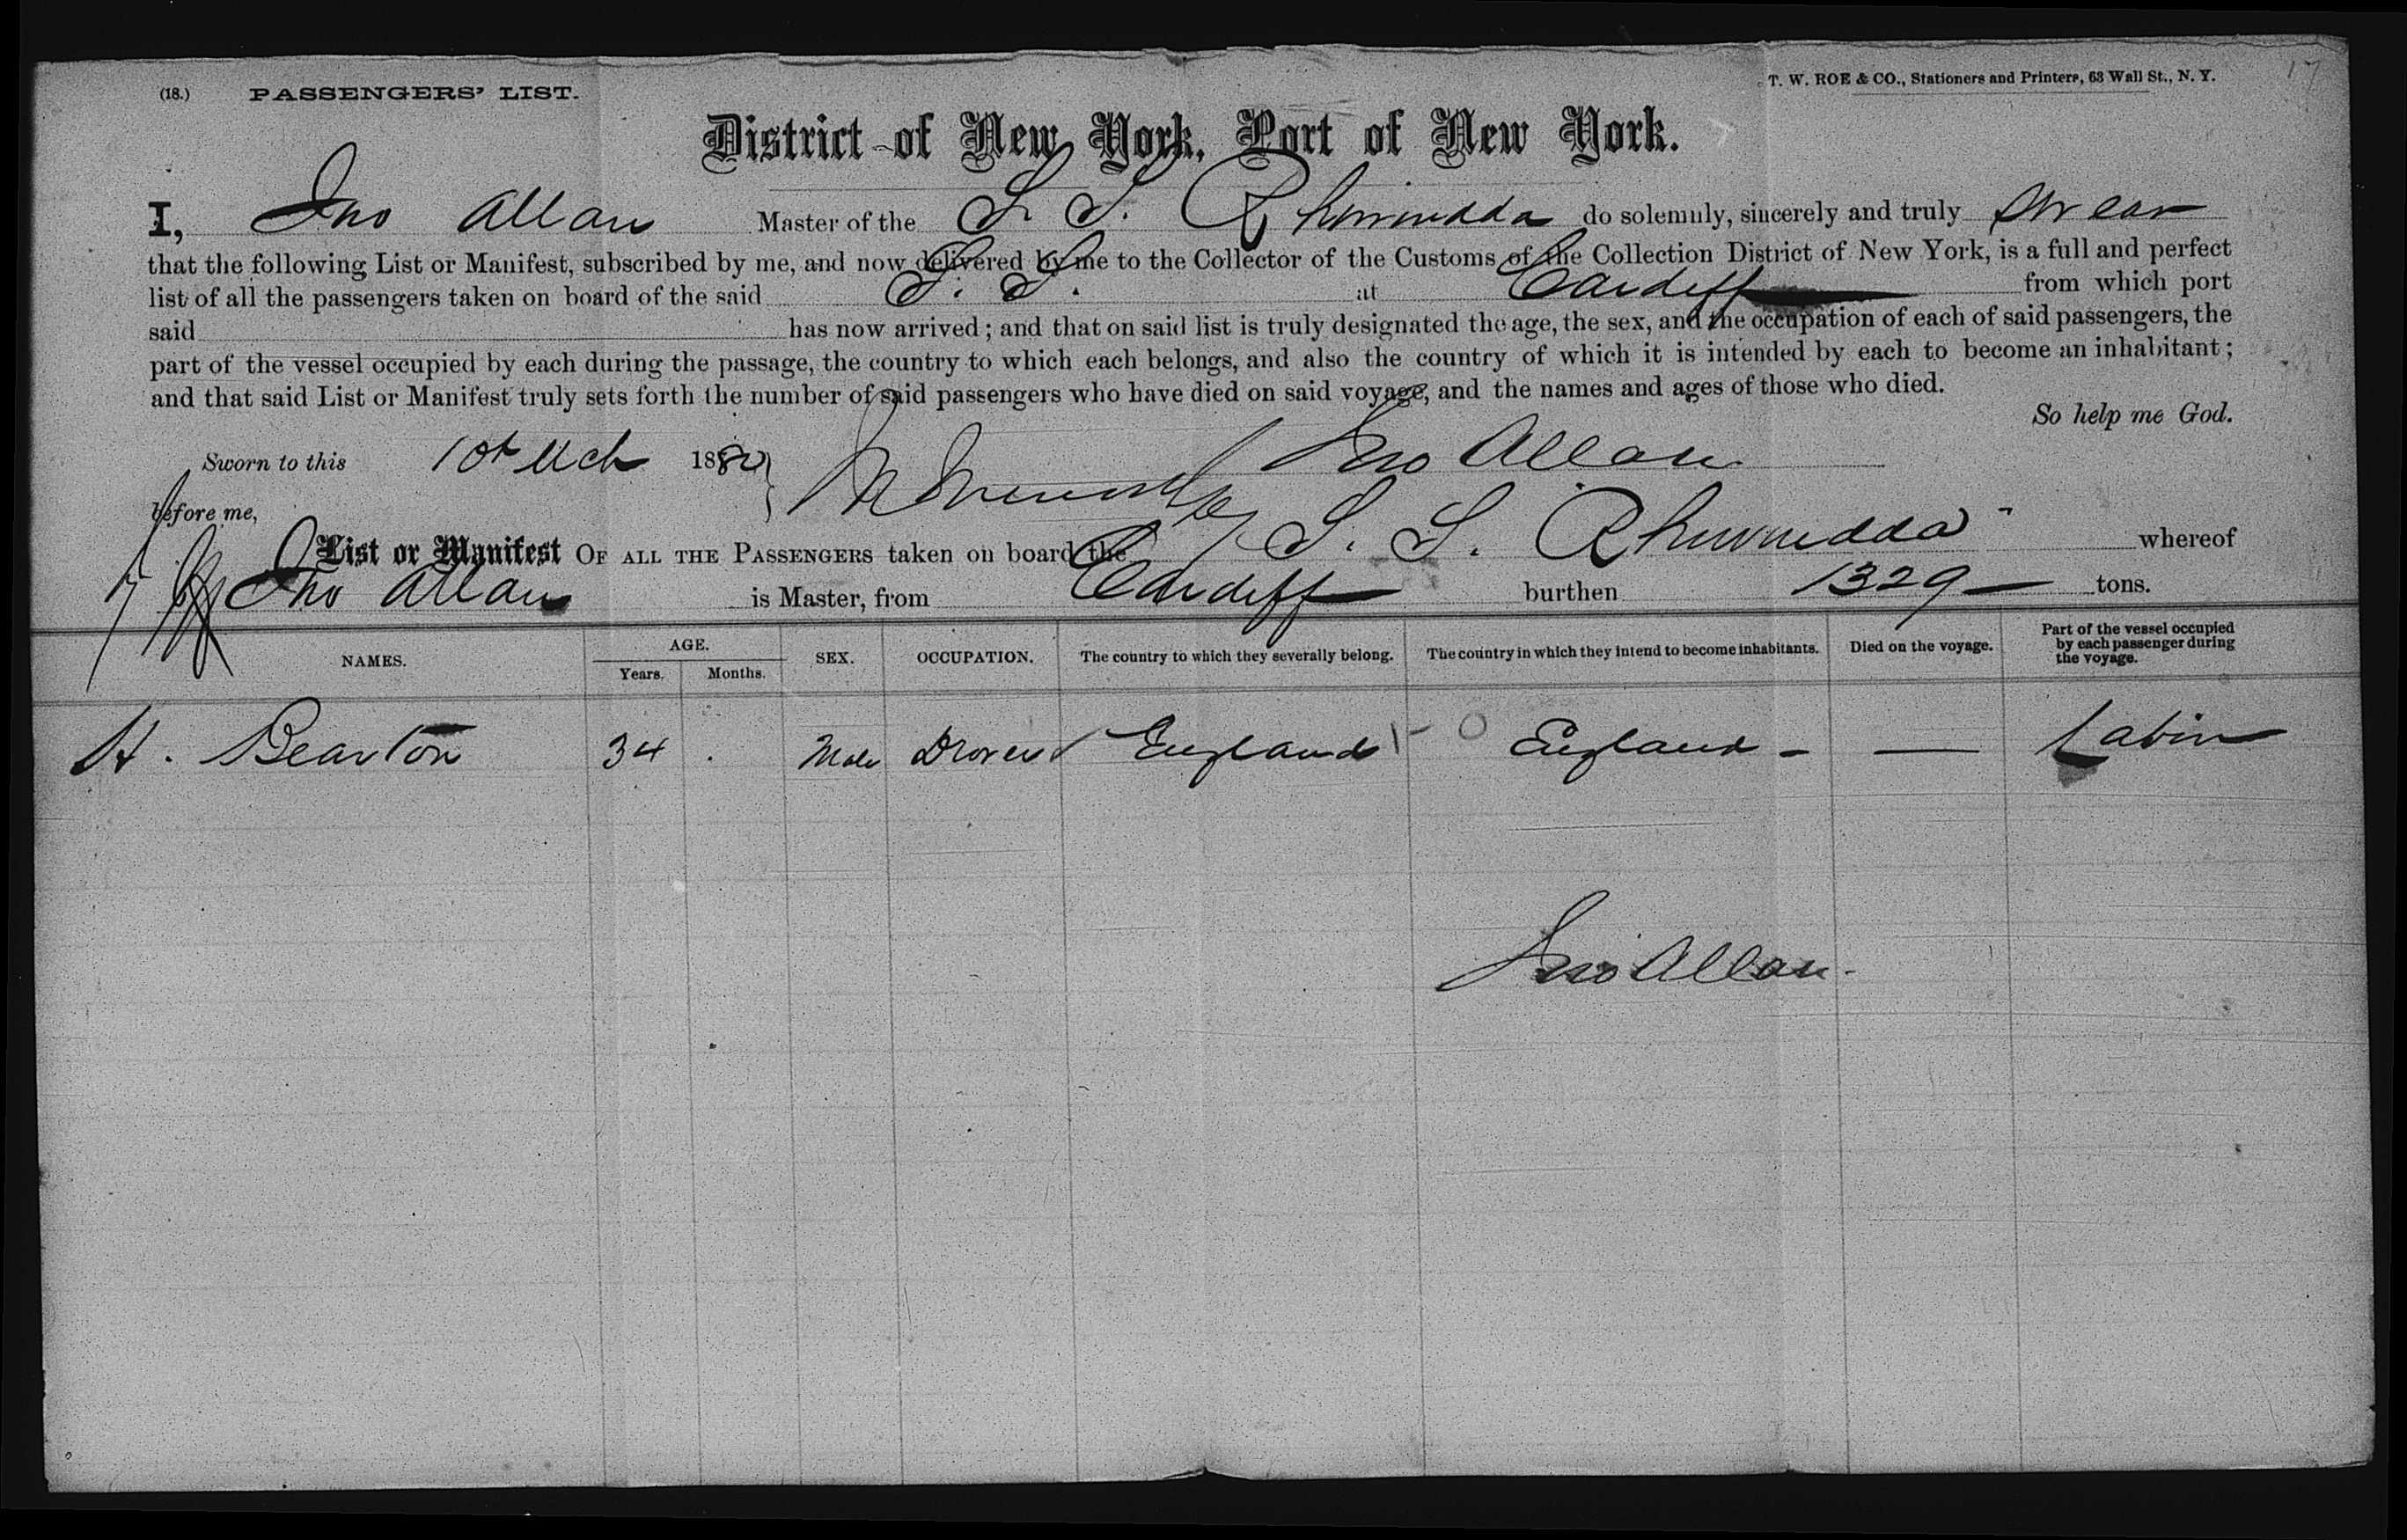 (18.) PASSENGERS' LIST. T. W. ROE & CO., Stationers and Printers, 63 Wall St., N. Y. 17
District of New York, Port of New York.
I, Jno Allan Master of the S. S. do solemnly, sincerely and truly swear
that the following List or Manifest, subscribed by me, and now delivered by me to the Collector of the Customs of the Collection District of New York, is a full and perfect
list of all the passengers taken on board of the said S. S. at Cardiff from which port
said has now arrived; and that on said list is truly designated the age, the sex, and the occupation of each of said passengers, the
part of the vessel occupied by each during the passage, the country to which each belongs, and also the country of which it is intended by each to become an inhabitant;
and that said List or Manifest truly sets forth the number of said passengers who have died on said voyage, and the names and ages of those who died.
So help me God.
Sworn to this 10th Mch 1880 Jno Allan
before me,
List or Manifest OF ALL THE PASSENGERS taken on board the S. S. whereof
Jno Allan is Master, from Cardiff burthen 1329 tons.
NAMES. AGE. Years. Months. SEX. OCCUPATION. The country to which they severally belong. The country in which they intend to become inhabitants. Died on the voyage. Part of the vessel occupied by each passenger during the voyage.
H. Bearton 34 . Male Drover England England - — Cabin
Jno Allan